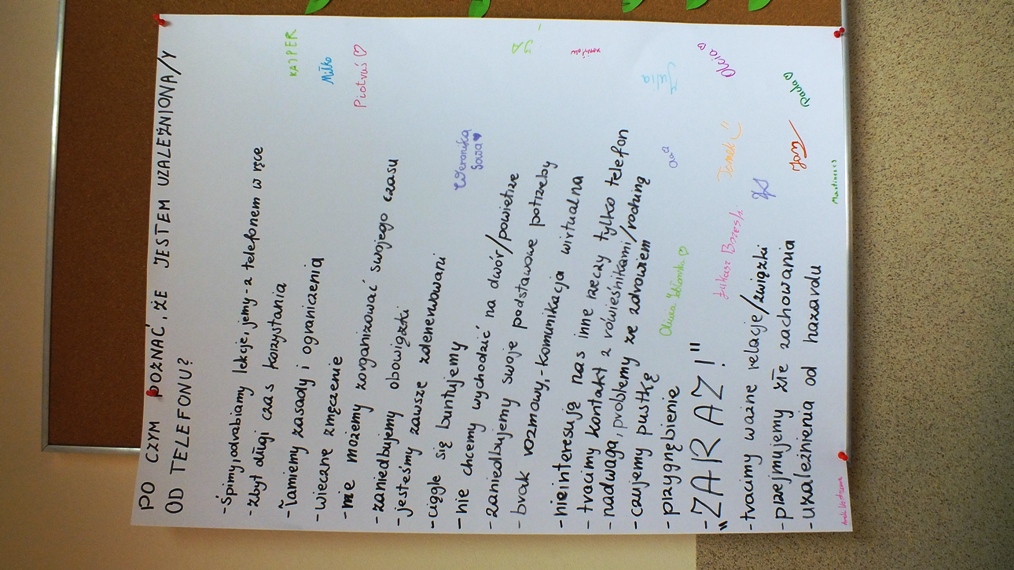 PO CZYM POZNAĆ, ŻE JESTEM UZALEŻNIONA/Y
OD TELEFONU?
- Śpimy, odrabiamy lekcje, jemy - z telefonem w ręce
- zbyt długi czas korzystania
- łamiemy zasady i ograniczenia
- wieczne zmęczenie
- nie możemy zorganizować swojego czasu
- zaniedbujemy obowiązki
- jesteśmy zawsze zdenerwowani
- ciągle się buntujemy
- nie chcemy wychodzić na dwór/powietrze
- zaniedbujemy swoje podstawowe potrzeby
- brak rozmowy, - komunikacja wirtualna
- nieinteresują nas inne rzeczy tylko telefon
- tracimy kontakt z rówieśnikami/rodziną
- nadwaga, problemy ze zdrowiem
- czujemy pustkę
- przygnębienie
- "ZARAZ!"
- tracimy ważne relacje/związki
- przejmujemy złe zachowania
- uzależnienia od hazardu
KACPER
Miłko
Piotruś
Weronika
Sowa
Oliwia
Łukasz
Olcia
Paula